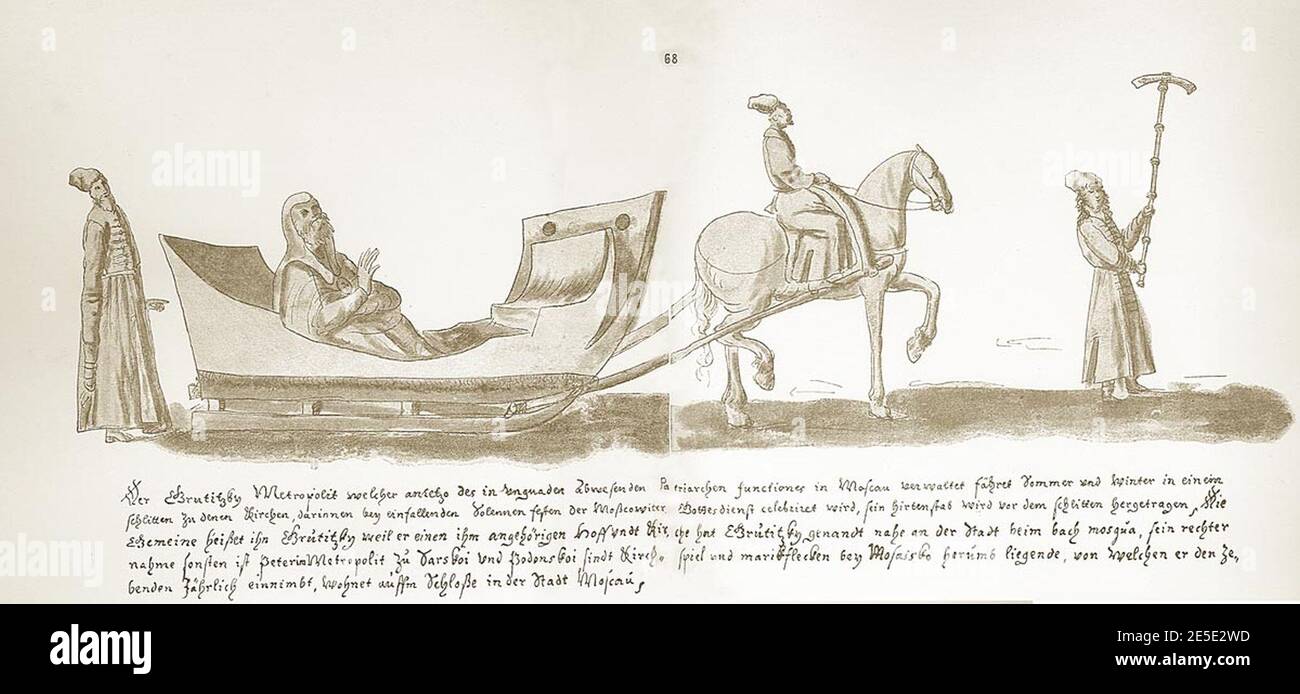 68
Der Grutitzky Metropolit welcher anietzo des in Ungnaden Abwesenden Patriarchen functiones in Moscau verwaltet fähret Sommer und Winter in einem
schlitten zu denen Kirchen, darinnen bey einfallenden Solennen festen der Moscowiter Gottesdienst celebriret wird, sein hirtenstab wird vor dem schlitten hergetragen, Die
Gemeine heißet ihn Grutitzky weil er einen ihm angehörigen Hoff undt Kirche hat Grutitzky genandt nahe an der Stadt beim bach mosqua, sein rechter
nahme sonsten ist Metropolit zu Sarskoi und Podonskoi sindt Kirchspiel und marckflecken bey Mosaisko herumb liegende, von welchen er den Ze,
henden Jährlich einnimbt, wohnet auffm Schloße in der Stadt Moscau,
alamy
Image ID: 2E5E2WD
www.alamy.com